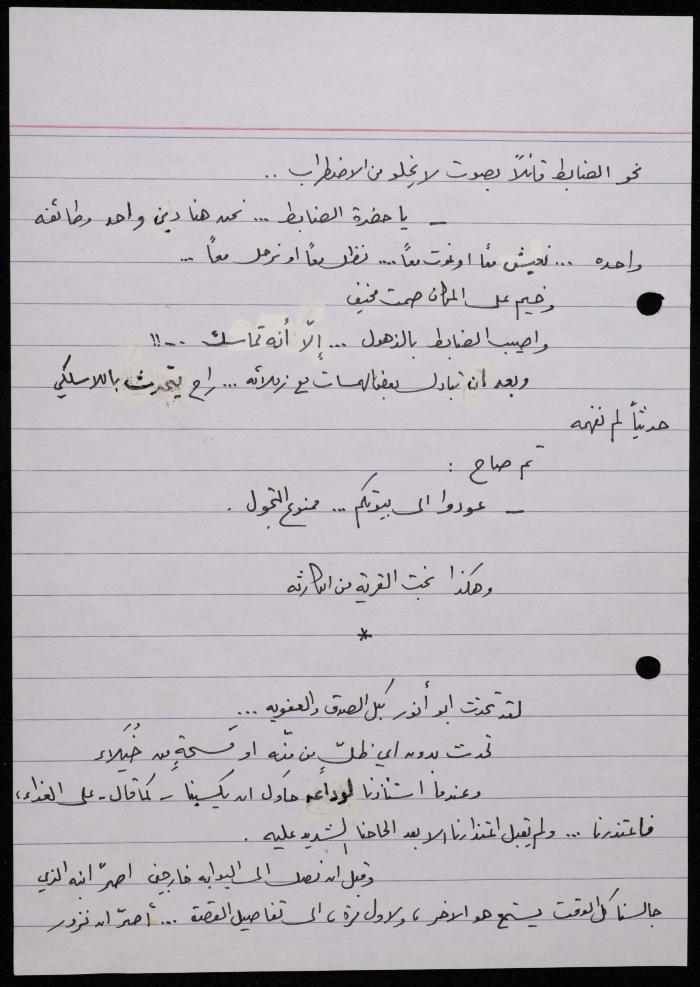 نحو الضابط قائلاً بصوت لا يخلو من الاضطراب ..
– يا حضرة الضابط ... نحن هنا دين واحد وطائفه
واحده ... نعيش معاً او نموت معاً .... نظل معاً او نرحل معاً ...
وخيم على المكان صمت مخيف
واصيب الضابط بالذهول ... إلّا أنه تماسك ...!!
وبعد ان تبادل بعض الهمسات مع زملائه ... راح يتحدث باللاسلكي
حديثاً لم نفهمه
ثم صاح :
– عودوا الى بيوتكم ... ممنوع التجول .
وهكذا نجت القرية من الكارثه
*
لقد تحدث ابو أنور بكل الصدق والعفويه ...
تحدث بدون اي ظلٍّ من منّه او مسحةٍ من خُيَلاء
وعندما استأذنا لوداعه حاول ان يكسبنا - كما قال - على الغداء،
فاعتذرنا ... ولم يقبل اعتذارنا الا بعد الحاحنا الشديد عليه .
وقبل ان نصل الى البوابه خارجين اصرّ ابنه الذي
جالسنا كل الوقت يستمع هو الاخر، ولاول مرة، الى تفاصيل القصة ... أصرّ ان نزور